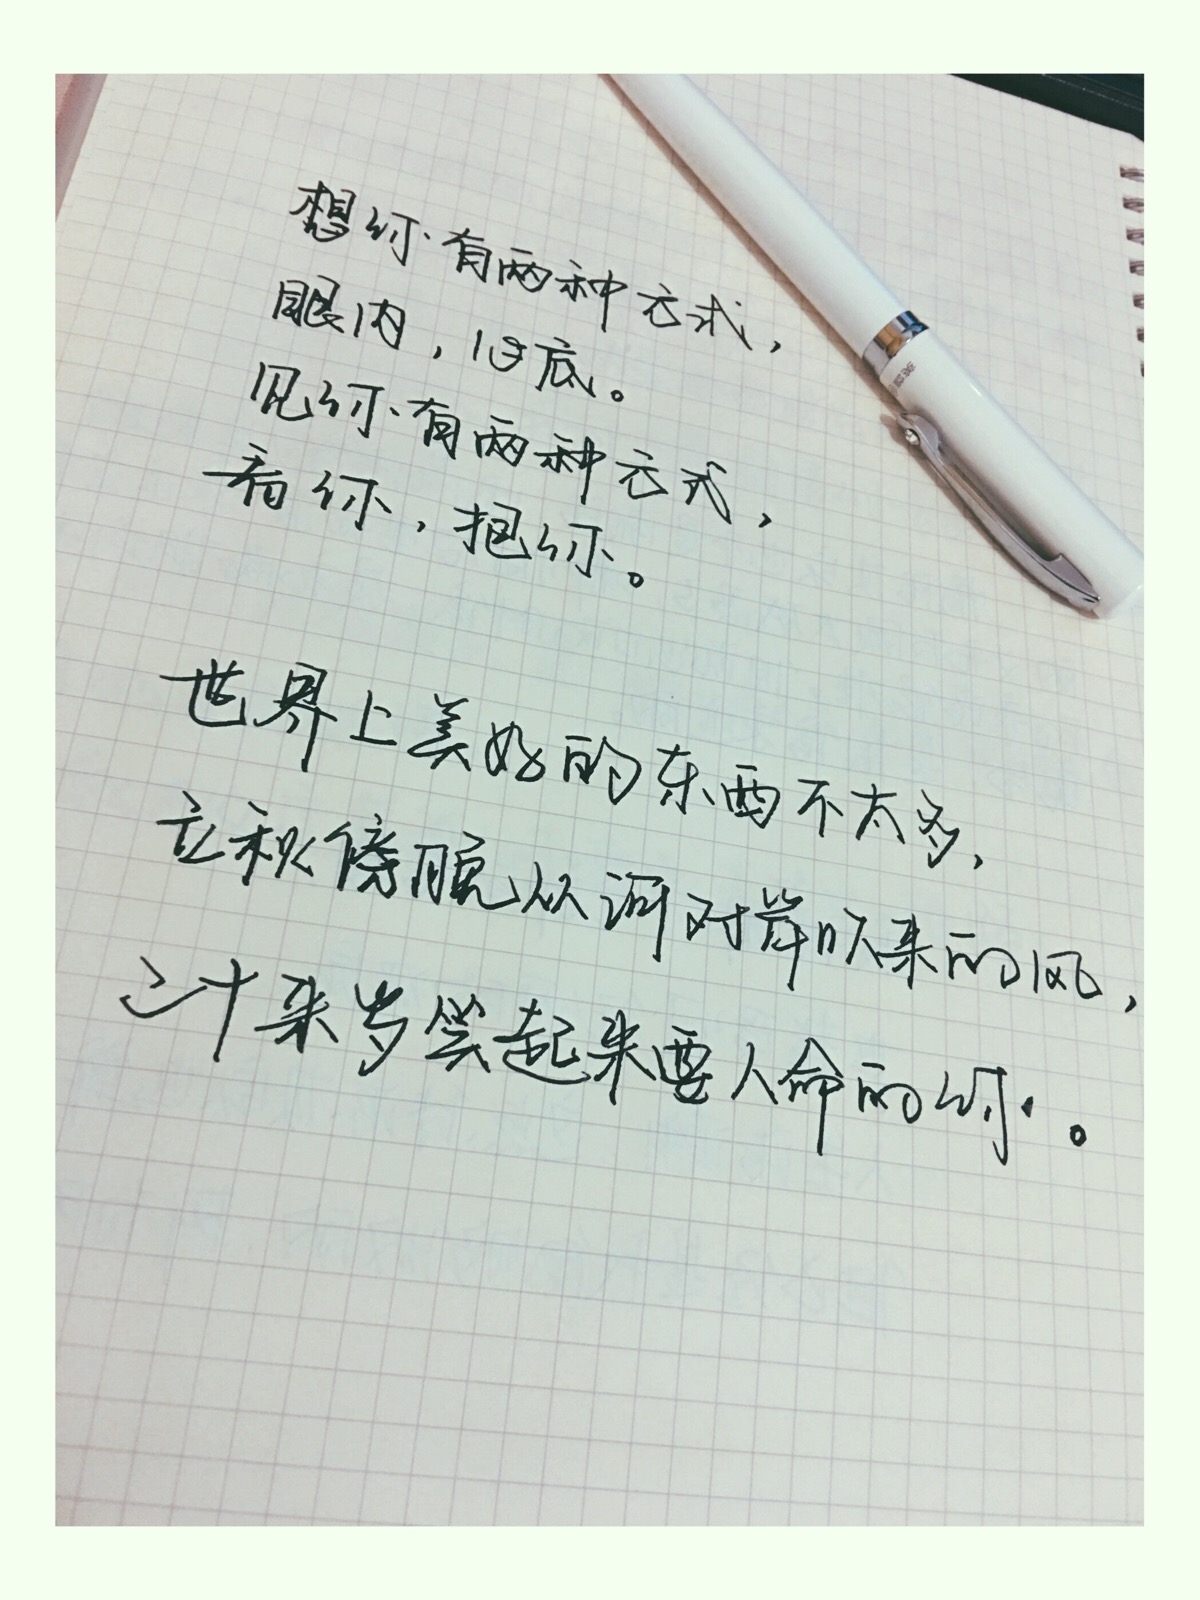 想你有两种方式，
眼内，心底。
见你有两种方式，
看你，抱你。
世界上美好的东西不太多，
立秋傍晚从河对岸吹来的风，
二十来岁笑起来要人命的你。